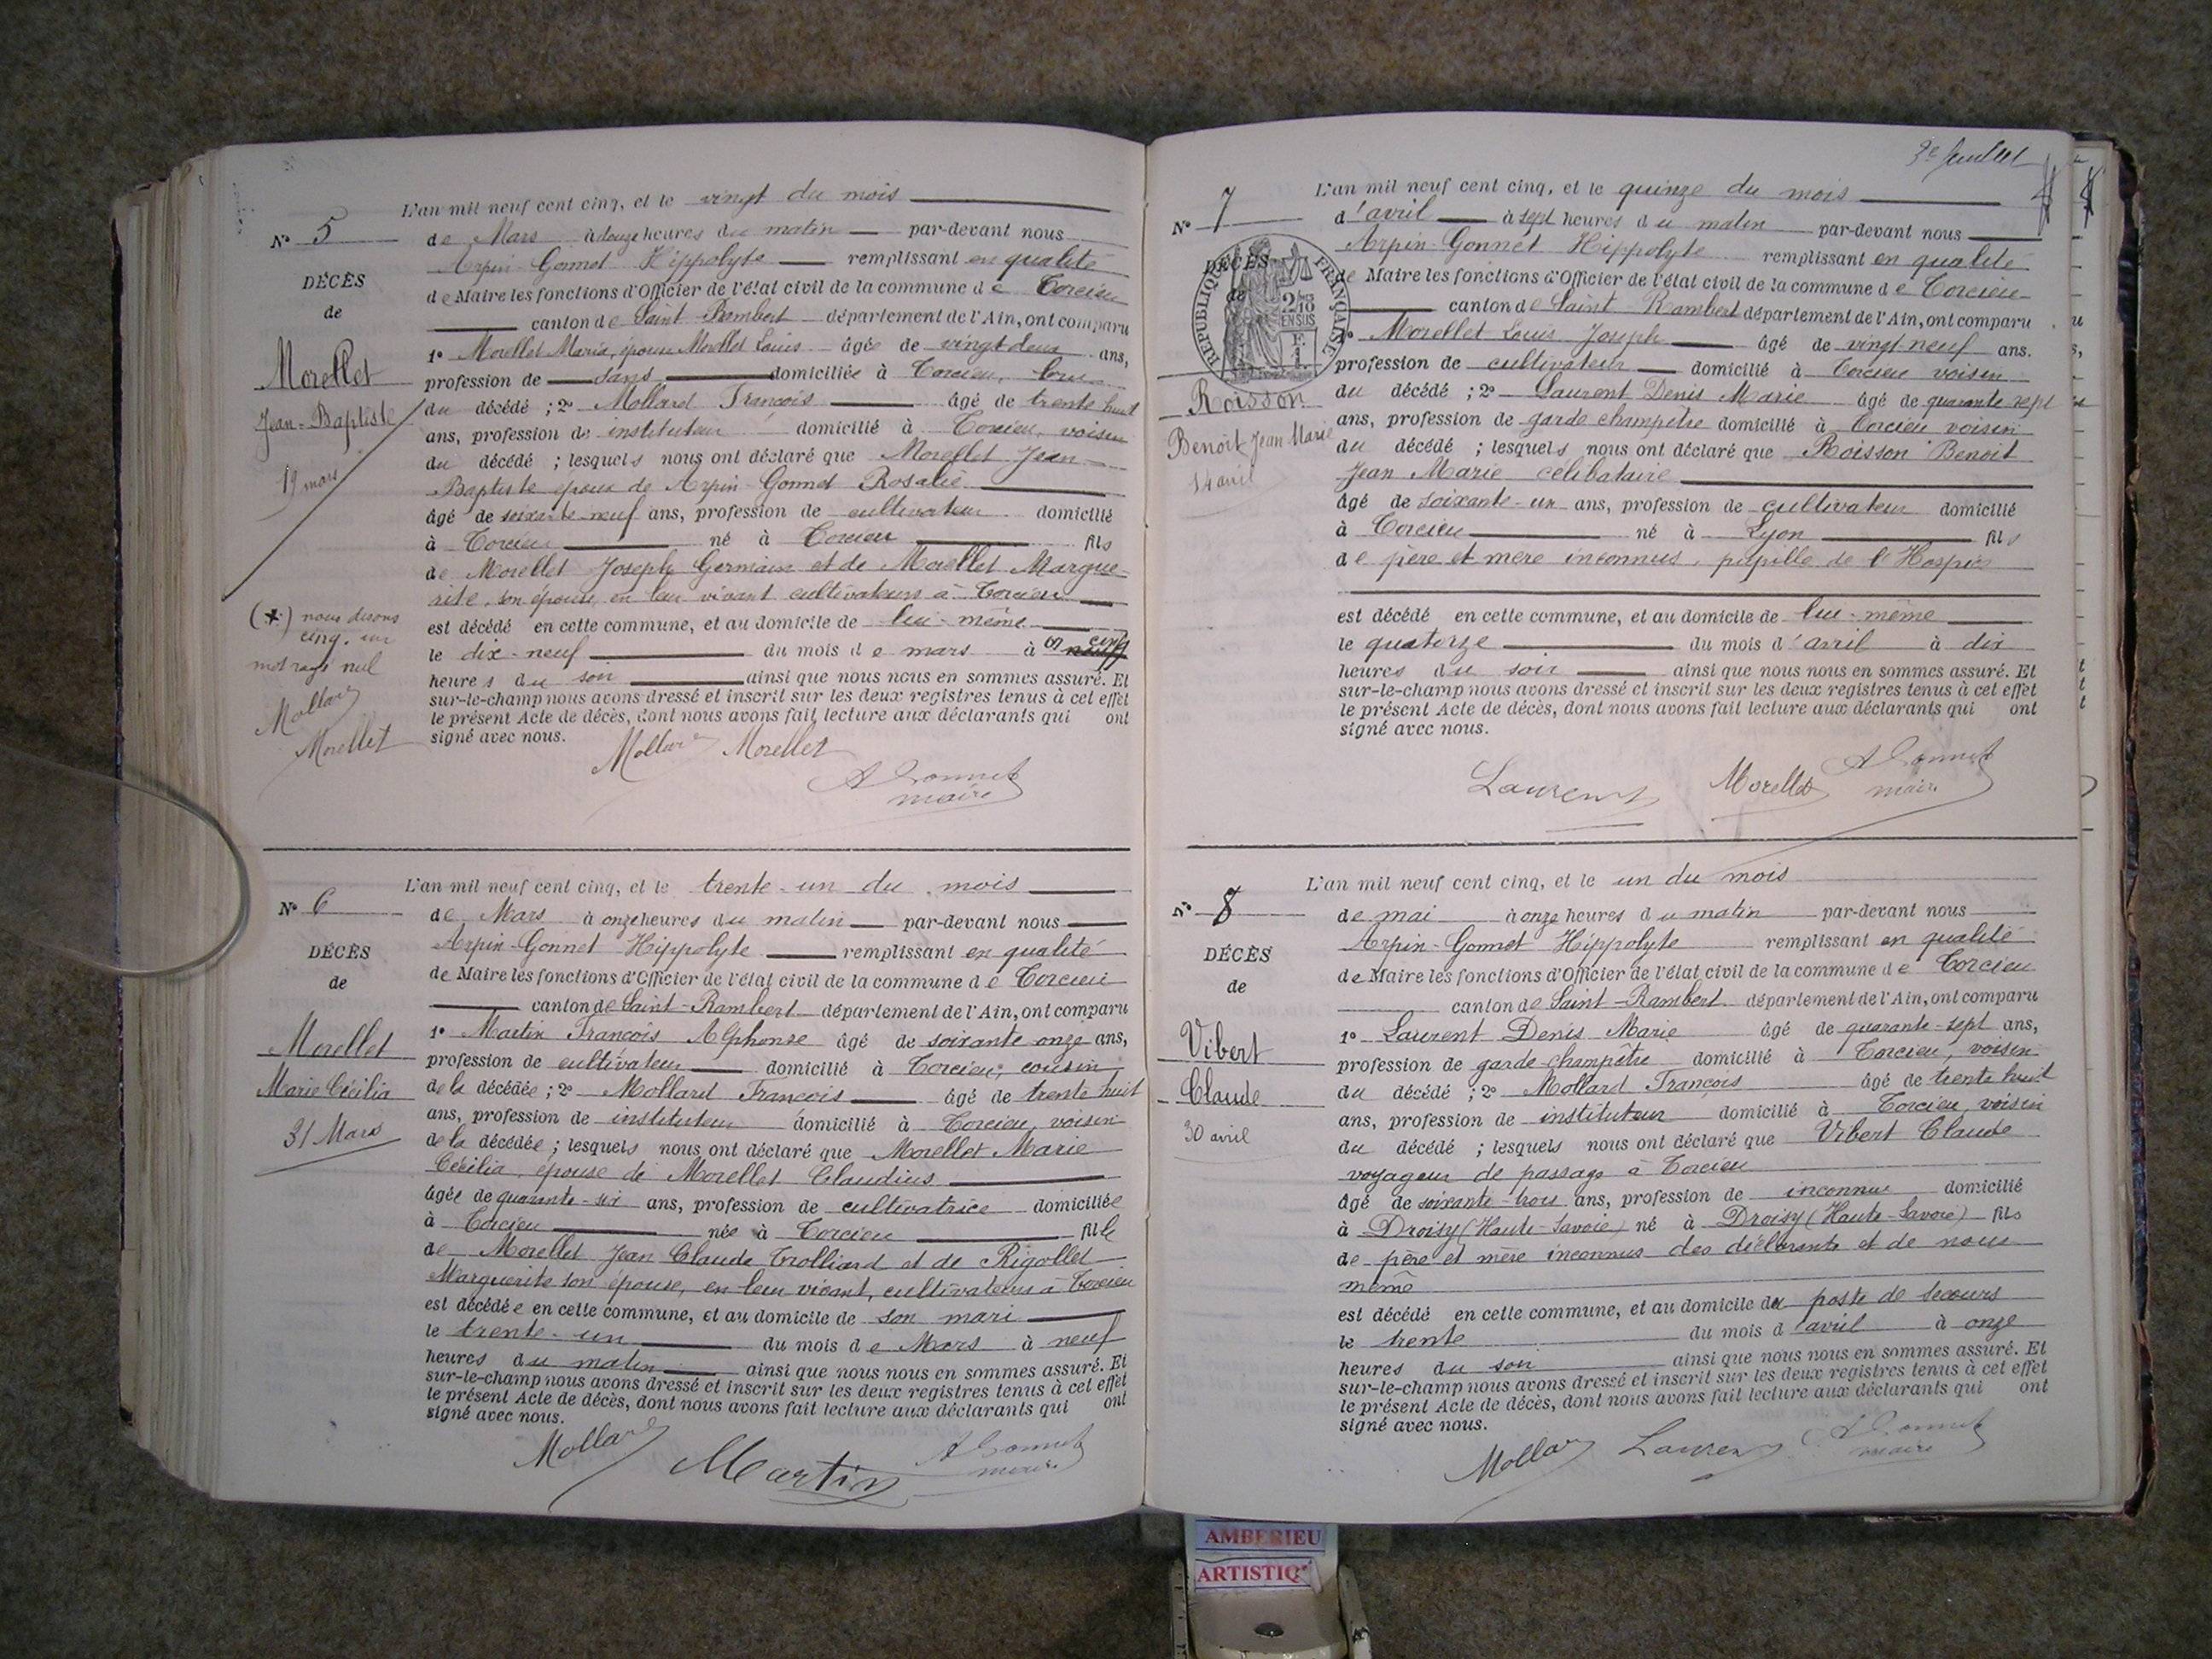 L'an mil neuf cent cinq, et le vingt du mois
N° 5
de Mars à douze heures du matin par-devant nous
DÉCÈS
Arpin-Gonnet Hippolyte remplissant en qualité
de
de Maire les fonctions d'Officier de l'état civil de la commune de Torcieu
canton de Saint-Rambert département de l'Ain, ont comparu
Morellet
1° Morellet Maria, épouse Morellet Louis âgée de vingt deux ans,
profession de sans domiciliée à Torcieu,
Jean-Baptiste
du décédé ; 2° Mollard François âgé de trente huit
ans, profession de instituteur domicilié à Torcieu, voisin
du décédé ; lesquels nous ont déclaré que Morellet Jean-
19 mars
Baptiste époux de Arpin-Gonnet Rosalie
âgé de soixante-neuf ans, profession de cultivateur domicilié
à Torcieu né à Torcieu fils
de Morellet Joseph Germain et de Morellet Margue-
rite, son épouse, en leur vivant cultivateurs à Torcieu
(*) nous disons
cinq. un
mot rayé nul
est décédé en cette commune, et au domicile de lui-même
le dix-neuf du mois de mars à (*) neuf cinq
heures du soir ainsi que nous nous en sommes assuré. Et
sur-le-champ nous avons dressé et inscrit sur les deux registres tenus à cet effet
le présent Acte de décès, dont nous avons fait lecture aux déclarants qui ont
signé avec nous.
Mollard
Morellet
Mollard Morellet
A Gonnet
maire
L'an mil neuf cent cinq, et le trente-un du mois
N° 6
de Mars à onze heures du matin par-devant nous
DÉCÈS
Arpin-Gonnet Hippolyte remplissant en qualité
de
de Maire les fonctions d'Officier de l'état civil de la commune de Torcieu
canton de Saint-Rambert département de l'Ain, ont comparu
Morellet
1° Martin François Alphonse âgé de soixante onze ans,
profession de cultivateur domicilié à Torcieu, cousin
Marie Cécilia
de la décédée ; 2° Mollard François âgé de trente huit
ans, profession de instituteur domicilié à Torcieu, voisin
31 Mars
de la décédée ; lesquels nous ont déclaré que Morellet Marie
Cécilia, épouse de Morellet Claudius
âgée de quarante-six ans, profession de cultivatrice domiciliée
à Torcieu née à Torcieu fille
de Morellet Jean Claude Trolliard et de Rigollet
Marguerite son épouse, en leur vivant, cultivateurs à Torcieu
est décédée en cette commune, et au domicile de son mari
le trente-un du mois de Mars à neuf
heures du matin ainsi que nous nous en sommes assuré. Et
sur-le-champ nous avons dressé et inscrit sur les deux registres tenus à cet effet
le présent Acte de décès, dont nous avons fait lecture aux déclarants qui ont
signé avec nous.
Mollard
Martin
A Gonnet
maire
3e feuillet
L'an mil neuf cent cinq, et le quinze du mois
N° 7
d'avril à sept heures du matin par-devant nous
DÉCÈS
Arpin-Gonnet Hippolyte remplissant en qualité
de
de Maire les fonctions d'Officier de l'état civil de la commune de Torcieu
RÉPUBLIQUE FRANÇAISE
2/10
EN SUS
canton de Saint-Rambert département de l'Ain, ont comparu
1° Morellet Louis Joseph âgé de vingt-neuf ans.
profession de cultivateur domicilié à Torcieu voisin
Roisson
du décédé ; 2° Laurent Denis Marie âgé de quarante sept
ans, profession de garde champêtre domicilié à Torcieu voisin
Benoît Jean Marie
du décédé ; lesquels nous ont déclaré que Roisson Benoît
14 avril
Jean Marie célibataire
âgé de soixante-un ans, profession de cultivateur domicilié
à Torcieu né à Lyon fils
de père et mère inconnus, pupille de l'Hospice
est décédé en cette commune, et au domicile de lui-même
le quatorze du mois d'avril à dix
heures du soir ainsi que nous nous en sommes assuré. Et
sur-le-champ nous avons dressé et inscrit sur les deux registres tenus à cet effet
le présent Acte de décès, dont nous avons fait lecture aux déclarants qui ont
signé avec nous.
Laurent Morellet A Gonnet
maire
L'an mil neuf cent cinq, et le un du mois
N° 8
de mai à onze heures du matin par-devant nous
DÉCÈS
Arpin-Gonnet Hippolyte remplissant en qualité
de
de Maire les fonctions d'Officier de l'état civil de la commune de Torcieu
canton de Saint-Rambert département de l'Ain, ont comparu
Vibert
1° Laurent Denis Marie âgé de quarante-sept ans,
profession de garde-champêtre domicilié à Torcieu, voisin
Claude
du décédé ; 2° Mollard François âgé de trente huit
ans, profession de instituteur domicilié à Torcieu, voisin
30 avril
du décédé ; lesquels nous ont déclaré que Vibert Claude
voyageur de passage à Torcieu
âgé de soixante-trois ans, profession de inconnue domicilié
à Droisy (Haute-Savoie) né à Droisy (Haute-Savoie) fils
de père et mère inconnus des déclarants et de nous
même
est décédé en cette commune, et au domicile du poste de secours
le trente du mois d'avril à onze
heures du soir ainsi que nous nous en sommes assuré. Et
sur-le-champ nous avons dressé et inscrit sur les deux registres tenus à cet effet
le présent Acte de décès, dont nous avons fait lecture aux déclarants qui ont
signé avec nous.
Mollard Laurent A Gonnet
maire
AMBERIEU
ARTISTIQ